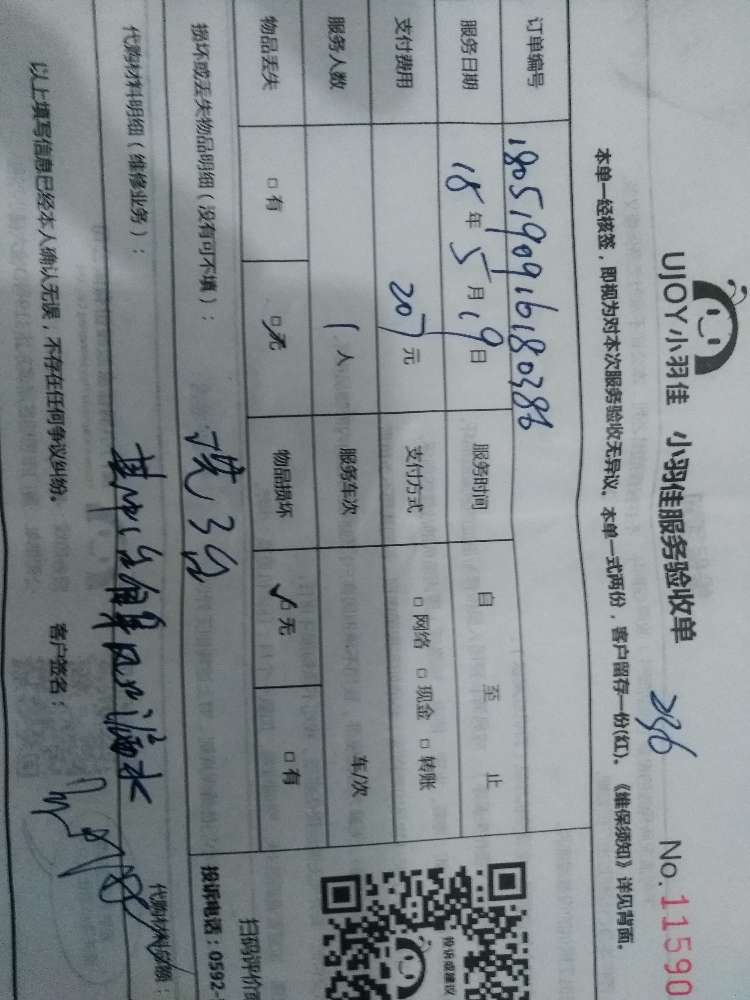 UJOY小羽佳 小羽佳服务验收单 236 No.11590
本单一经核签，即视为对本次服务验收无异议。本单一式两份，客户留存一份(红)。《维保须知》详见背面。
订单编号 1805190916180386
服务日期 18年5月19日 服务时间 自 至 止
支付费用 207元 支付方式 □网络 □现金 □转账
服务人数 1人 服务车次 车/次
物品丢失 □有 □无 物品损坏 □无 □有
损坏或丢失物品明细（没有可不填）： 洗3台
代购材料明细（维修业务）： 其中1台 风口漏水 代购材料金额：
以上填写信息已经本人确认无误，不存在任何争议纠纷。 客户签名：
投诉或建议
扫码评价
投诉电话：0592-